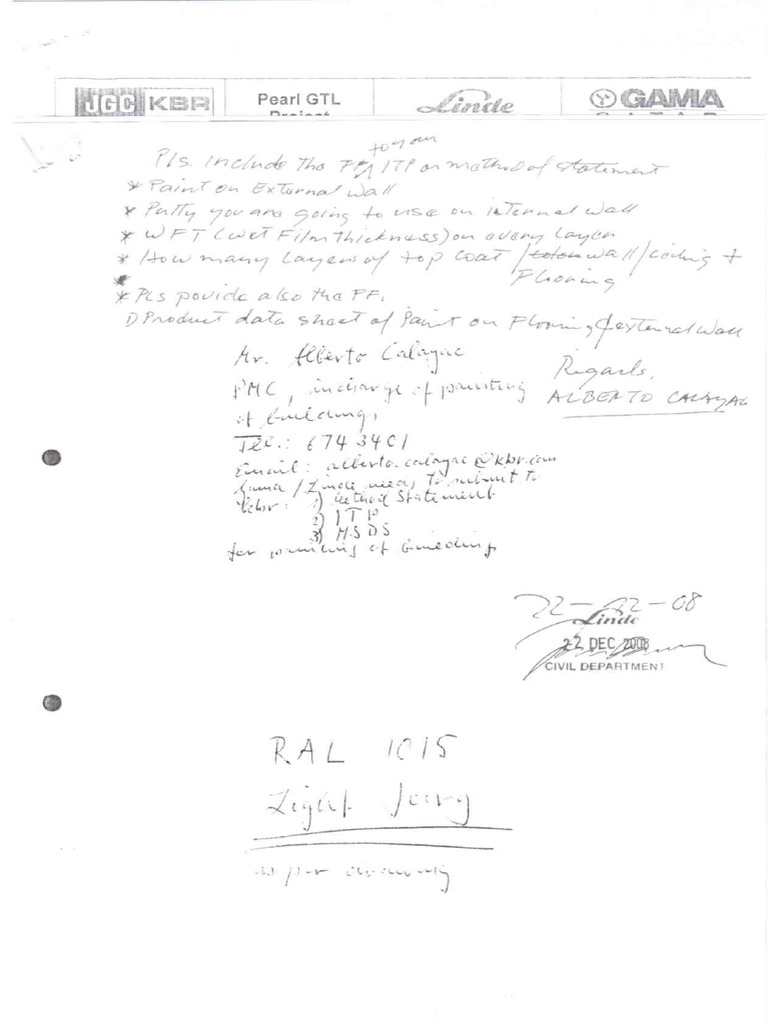 JGC KBR Pearl GTL Project Linde GAMA QATAR
to your
Pls. include the FF, ITP or method of statement
* Paint on External wall
* Putty you are going to use on internal wall
* WFT (Wet Film thickness) on every layer
* How many Layers of top coat / wall / ceiling +
Flooring
*
* Pls povide also the FF.
1) Product data sheet of Paint on Flooring & external wall
Mr. Alberto Calayac
PMC, incharge of painting
of buildings
Regards,
ALBERTO CALAYAG
Tel.: 674 3401
Email: alberto.calayac@kbr.com
Gama / Linde needs to submit to
kbr: 1) Method Statement
2) ITP
3) MSDS
for painting of buildings
22-12-08
Linde
22 DEC 2008
CIVIL DEPARTMENT
RAL 1015
Light Ivory
as per drawing